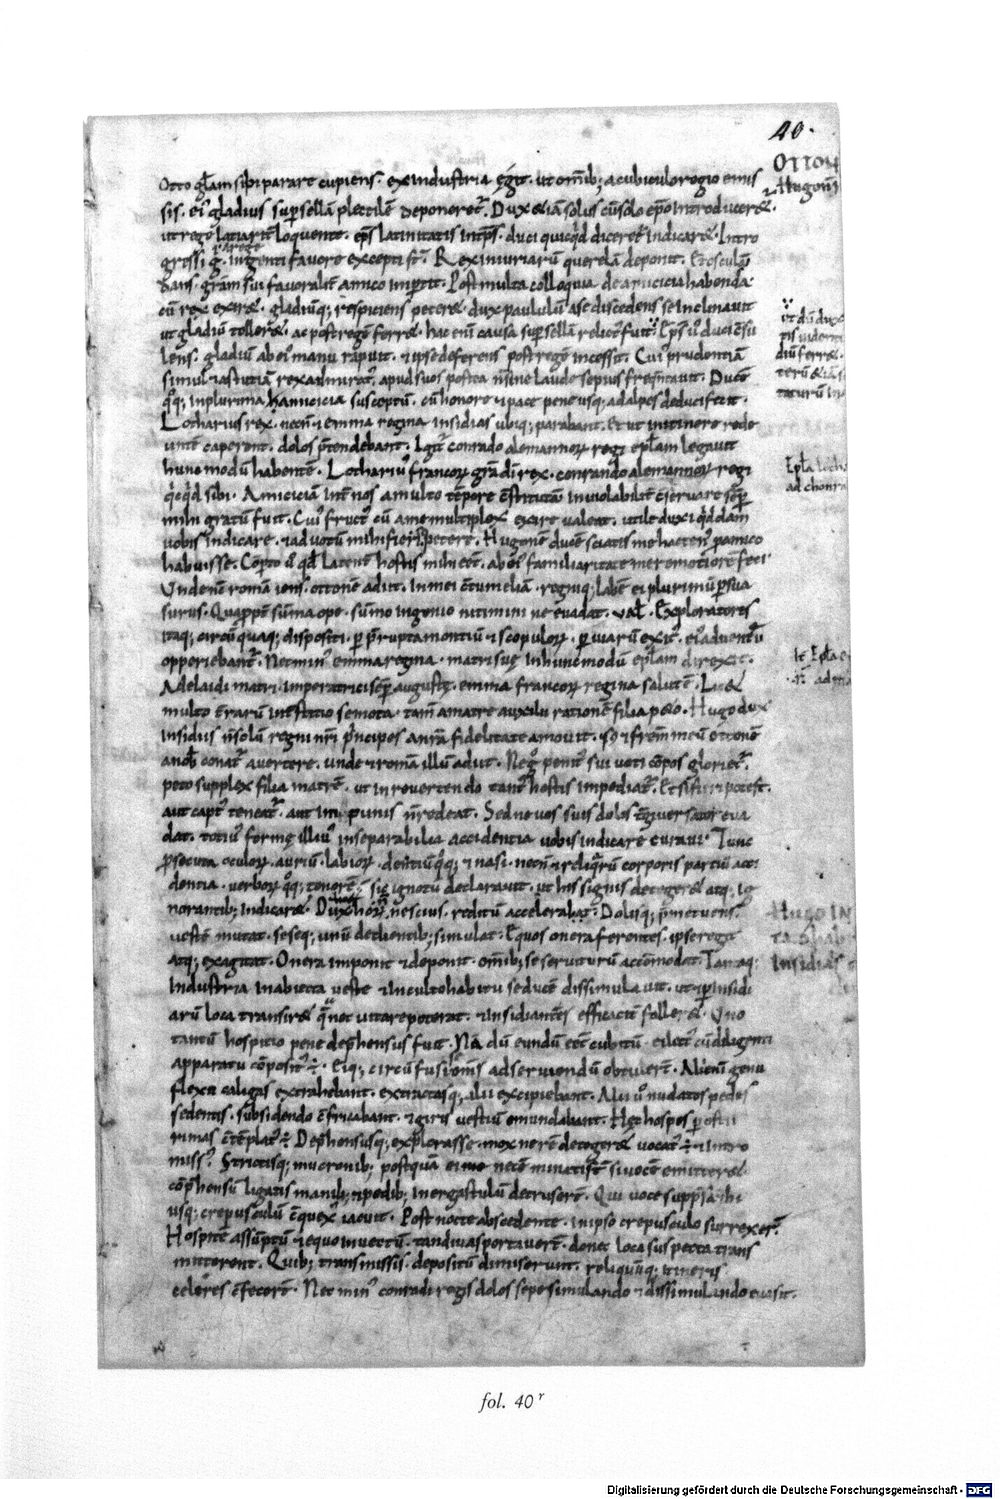 40.
Otto gl̄am sibi parare cupiens · ex industria ęgit · ut om̄ib; a cubiculo regio emis
sis · ei᾽ gladius sup̄ sellā plectilē deponeret᾽. Dux &iā solus cū solo ep̄o introducer&.
ut rege latiarit̄ loquente · ep̄s latinitatis int̄p̄s · duci quicq̄d diceret᾽ indicar&. Intro
gressi g̊ · ingenti favore excepti st̄. Rex iniuriarū querelā deponit. Et osculū
a rege
dans · grām sui favoralit̄ amico imp̄tit. Post multa colloquia de amicicia habenda
cū rex exir& · gladiūq; respiciens peter& · dux paululū a se discedens se inclinavit
ut gladiū toller& · ac post regē ferr& · hac enī causa sup̄ sellā relict᾽ fuit. Ep̄s u᾽ duci c̄su
lens · gladiū ab ei᾽ manu rapuit · & ipse deferens post regē incessit. Cui᾽ prudentiā
simul & astutiā rex admirat᾽, apud suos postea n̄ sine laude sepius freq̄ntavit. Ducē
q̊q; in plurima amicicia susceptū · cū honore & pace pene usq; ad alpes deduci fecit.
Lotharius rex · necn̄ & emma regina insidias ubiq; parabant. Et ut in itinere rede
untē caperent · dolos p̄tendebant. Igit᾽ conrado alemannoꝝ regi ep̄lam legavit
hunc modū habentē. Lothari᾽ francoꝝ grā dī rex · conrando alemannoꝝ regi
q̇cq̇d sibi · Amiciciā int̄ nos a multo tēpore c̄stitutā inviolabilit̄ c̄servare sēp̄
mihi gratū fuit. Cui᾽ fruct᾽ cū a me multiplex exire valeat · utile duxi q̇ddam
vobis indicare · & ad votū mihi fieri petere. Hugonē ducē sciatis me hacten᾽ p̄ amico
habuisse. Cōpto u᾽ q̇d latent̄ hostis mihi eēt · ab ei᾽ familiaritate me remotiorē feci
Unde nc̄ romā iens · ottonē adiit · in mei c̄tumeliā · regniq; labē ei plurimū p̄sua
surus. Quapp̄t sūma ope · sūmo ingenio nitimini ne evadat · val̄. Exploratores
itaq; circūquaq; dispositi · p̄ p̄rupta montiū & scopuloꝝ · p̄ viarū exit᾽ · ei᾽ adventū
opperiebant᾽. Nec min᾽ emma regina · matri suę in hunc modū ep̄lam direxit.
Adelaidi matri · imperatrici sēp̄ augustę · emma francoꝝ regina salutē. Lic&
multo t̄rarū int̄stitio semota · tam̄ a matre auxilii rationē filia p&o. Hugo dux
insidiis n̄ solū regni nr̄i p̄ncipes a nr̄a fidelitate amovit · s; & frēm meū ottonē
a nob̄ conat᾽ avertere · unde & romā illū adiit. Neq; penit᾽ sui voti cōpos gloriet᾽.
peto supplex filia matrē · ut in revertendo tant᾽ hostis impediat᾽. Et si fieri potest.
aut capt᾽ teneat᾽ · aut impunis n̄ redeat. Sed ne vos suis dolos t̄giversator eva
dat · toti᾽ formę illi᾽ inseparabilia accidentia vobis indicare curavi. Tunc
p̄secuta oculoꝝ · auriū · labioꝝ · dentiūq̊q; & nasi · necn̄ & reliq̄rū corporis partiū acci
dentia · verboꝝ q̊q; tenorē · sic ignotū declaravit · ut his signis deteger& atq; ig
norantib; indicar&. Dux hoꝝ n̄ nescius · reditū accelerabat. Dolisq; p̄metuens.
vestē mutat · seseq; unū de clientib; simulat. Equos onera ferentes · ipse regit
atq; exagitat. Onera imponit & deponit · om̄ib; se serviturū accōmodat. Tantaq;
industria in abiecta veste & inculto habitu se ducē dissimulavit · ut & p̄ insidi
arū loca transir& · q̄ nec vitare poterat · & insidiantes efficacit̄ faller&. Uno
tantū hospitio pene dep̄hensus fuit. Nā dū eundū eēt cubitū · ei lect᾽ cū diligenti
apparatu cōposit᾽ ÷. Eiq; circūfusi om̄s ad serviendū obtulert̄. Alii enī genu
flexu caligas extrahebant · extractasq; alii excipiebant. Alii u᾽ nudatos pedes
sedentis · subsidendo c̄fricabant · & giris vestiū emundabant. Hęc hospes p̄ ostii
rimas c̄tēplat᾽ ÷. Dep̄hensusq; explorasse · mox ne rē deteger& vocat᾽ ÷ & intro
miss᾽. Strictisq; mucronib; postquā ei necē minati st̄ si vocē emitter&
cōp̄hensū ligatis manib; & pedib; in ergastulum detruserт̄. Qui voce supp̄ssa ibi
usq; crepusculū c̄quex᾽ iacuit. Post nocte abscedente · in ipso crepusculo surrexert̄.
Hospitē assūptū & equo invectū · tandiu asportavert̄ · donec loca suspecta trans
mitterent. Quib; transmissis · depositū dimiserunt · reliquūq; itineris
celeres c̄fecert̄. Nec min᾽ conradi regis dolos sepe simulando & dissimulando evasit.
Hugonis
Ep̄la loth
ad chonra
It Ep̄la e
Hugo in
insidias
fol. 40 r
Digitalisierung gefördert durch die Deutsche Forschungsgemeinschaft - DFG